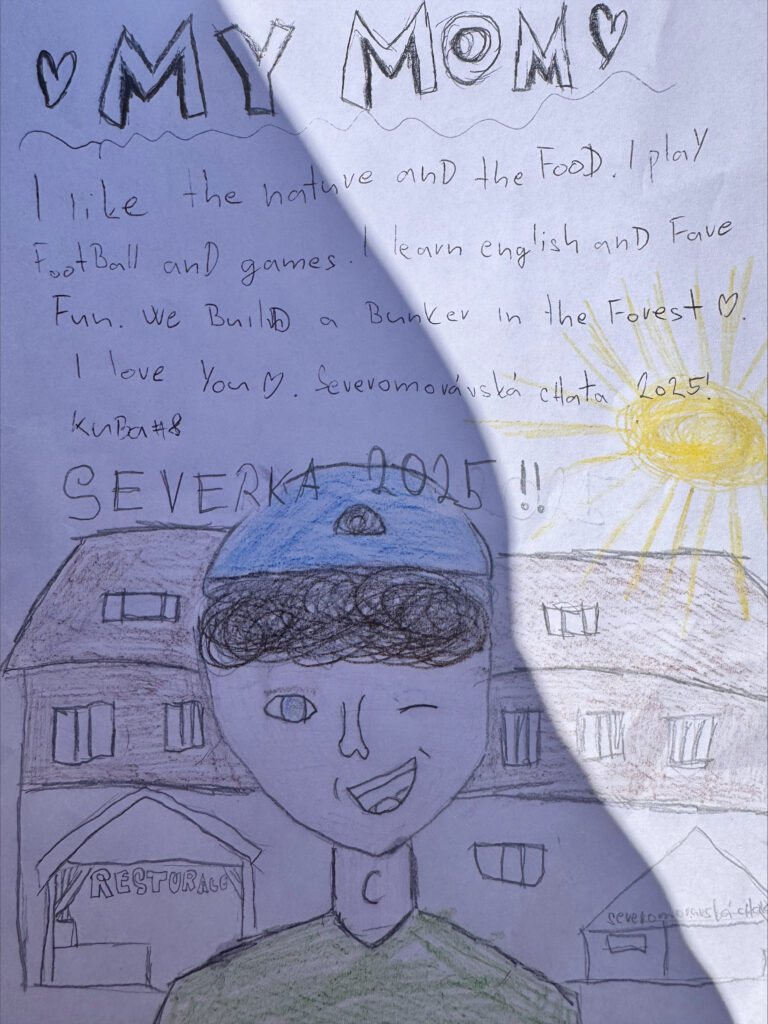 ♡ MY MOM ♡
I like the nature and the FooD. I plaY
FootBall anD games. I learn english anD Fave
Fun. We BuilD a Bunker in the Forest ♡.
I love You ♡. Severomorávská cHata 2025!
KuBa#8
SEVERKA 2025 !!
RESTURACE
severomoravská cHata